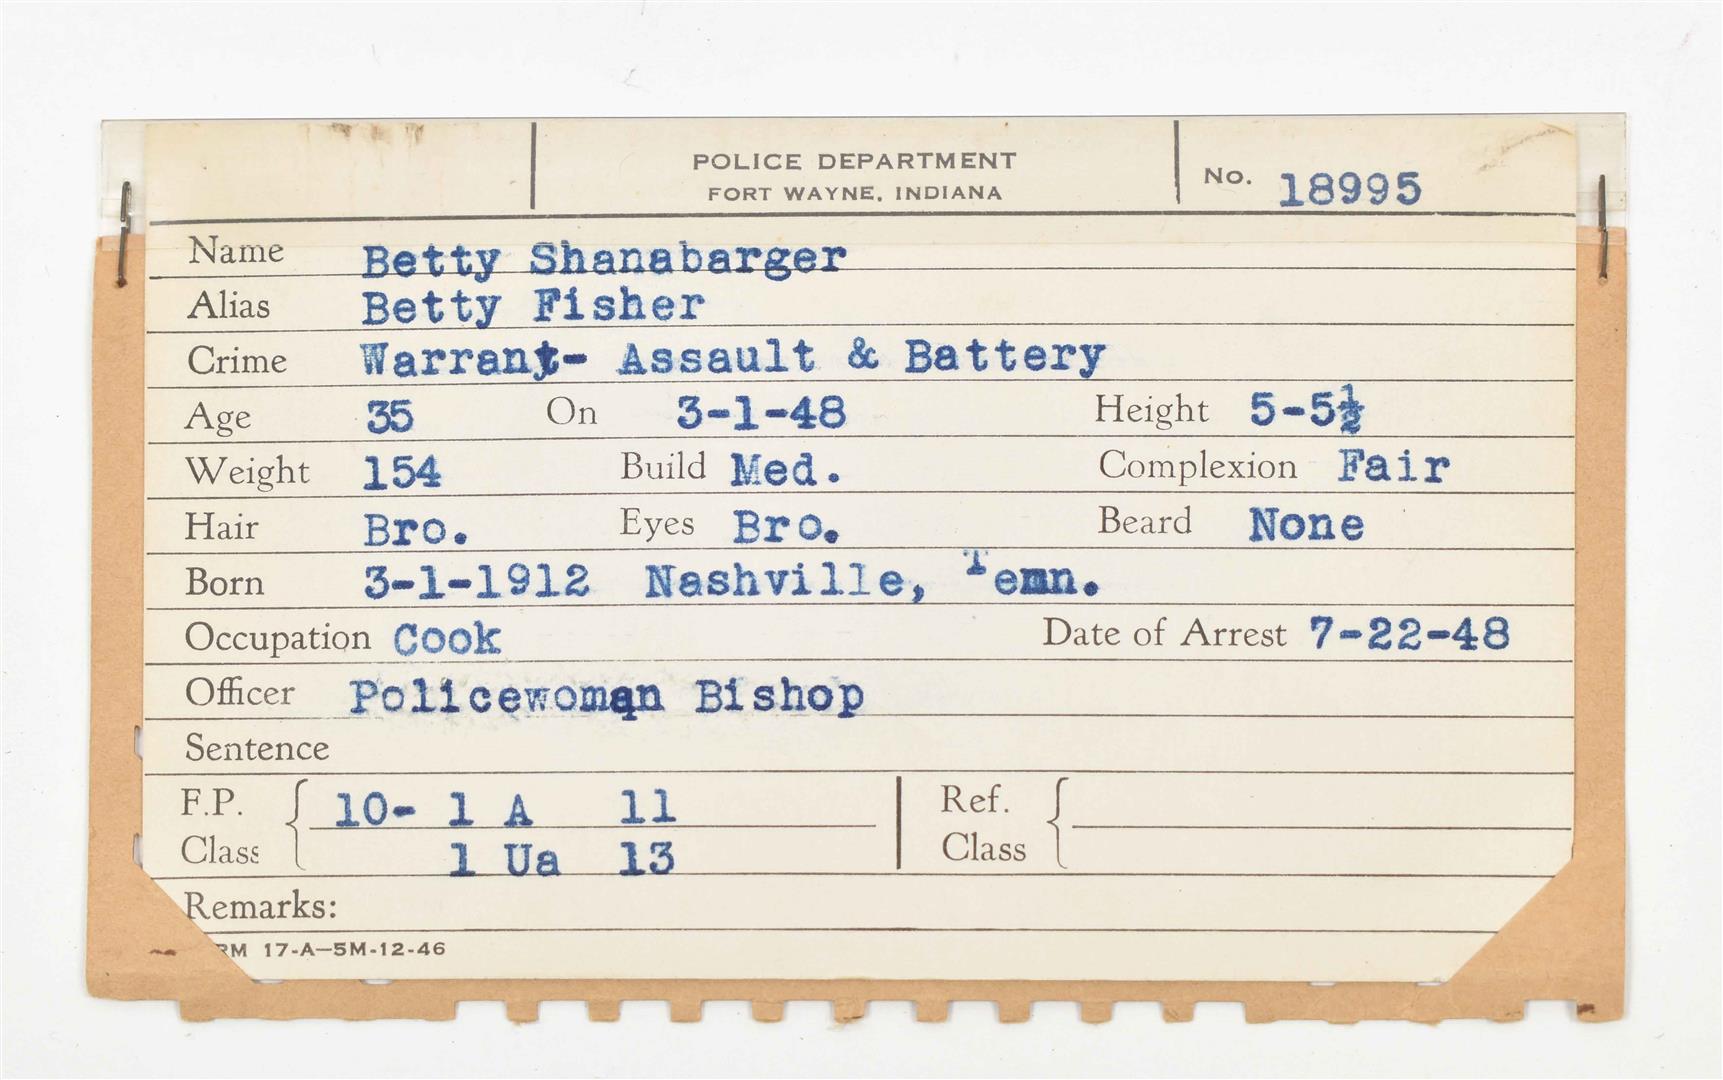 POLICE DEPARTMENT
FORT WAYNE, INDIANA
No. 18995
Name Betty Shanabarger
Alias Betty Fisher
Crime Warrant- Assault & Battery
Age 35 On 3-1-48 Height 5-5½
Weight 154 Build Med. Complexion Fair
Hair Bro. Eyes Bro. Beard None
Born 3-1-1912 Nashville, Tenn.
Occupation Cook Date of Arrest 7-22-48
Officer Policewoman Bishop
Sentence
F.P. 10- 1 A 11 Ref.
Class 1 Ua 13 Class
Remarks:
RM 17-A—5M-12-46